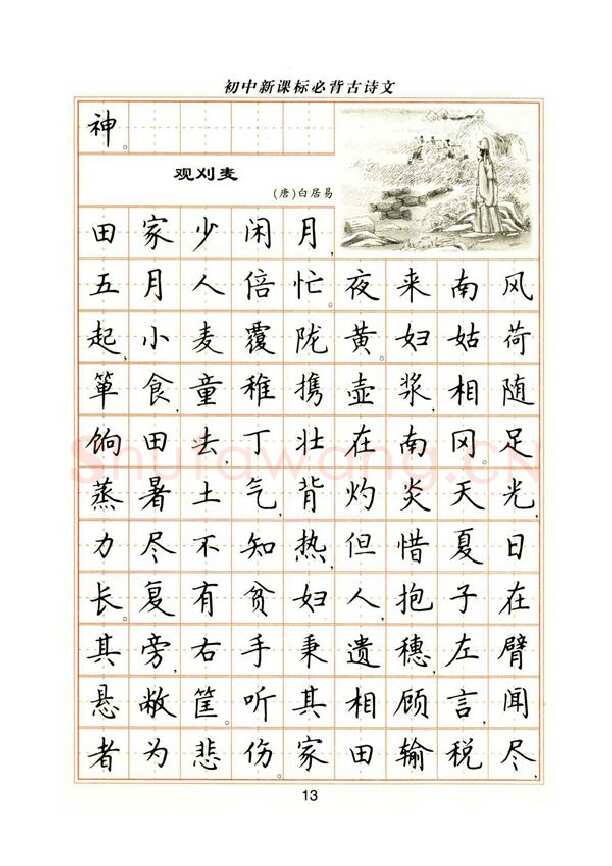 初中新课标必背古诗文
神。
观刈麦
(唐)白居易
田家少闲月,
五月人倍忙。夜来南风
起,小麦覆陇黄。妇姑荷
箪食,童稚携壶浆,相随
饷田去,丁壮在南冈。足
蒸暑土气,背灼炎天光,
力尽不知热,但惜夏日
长。复有贫妇人,抱子在
其旁,右手秉遗穗,左臂
悬敝筐。听其相顾言,闻
者为悲伤。家田输税尽,
13
Shufawang.CN